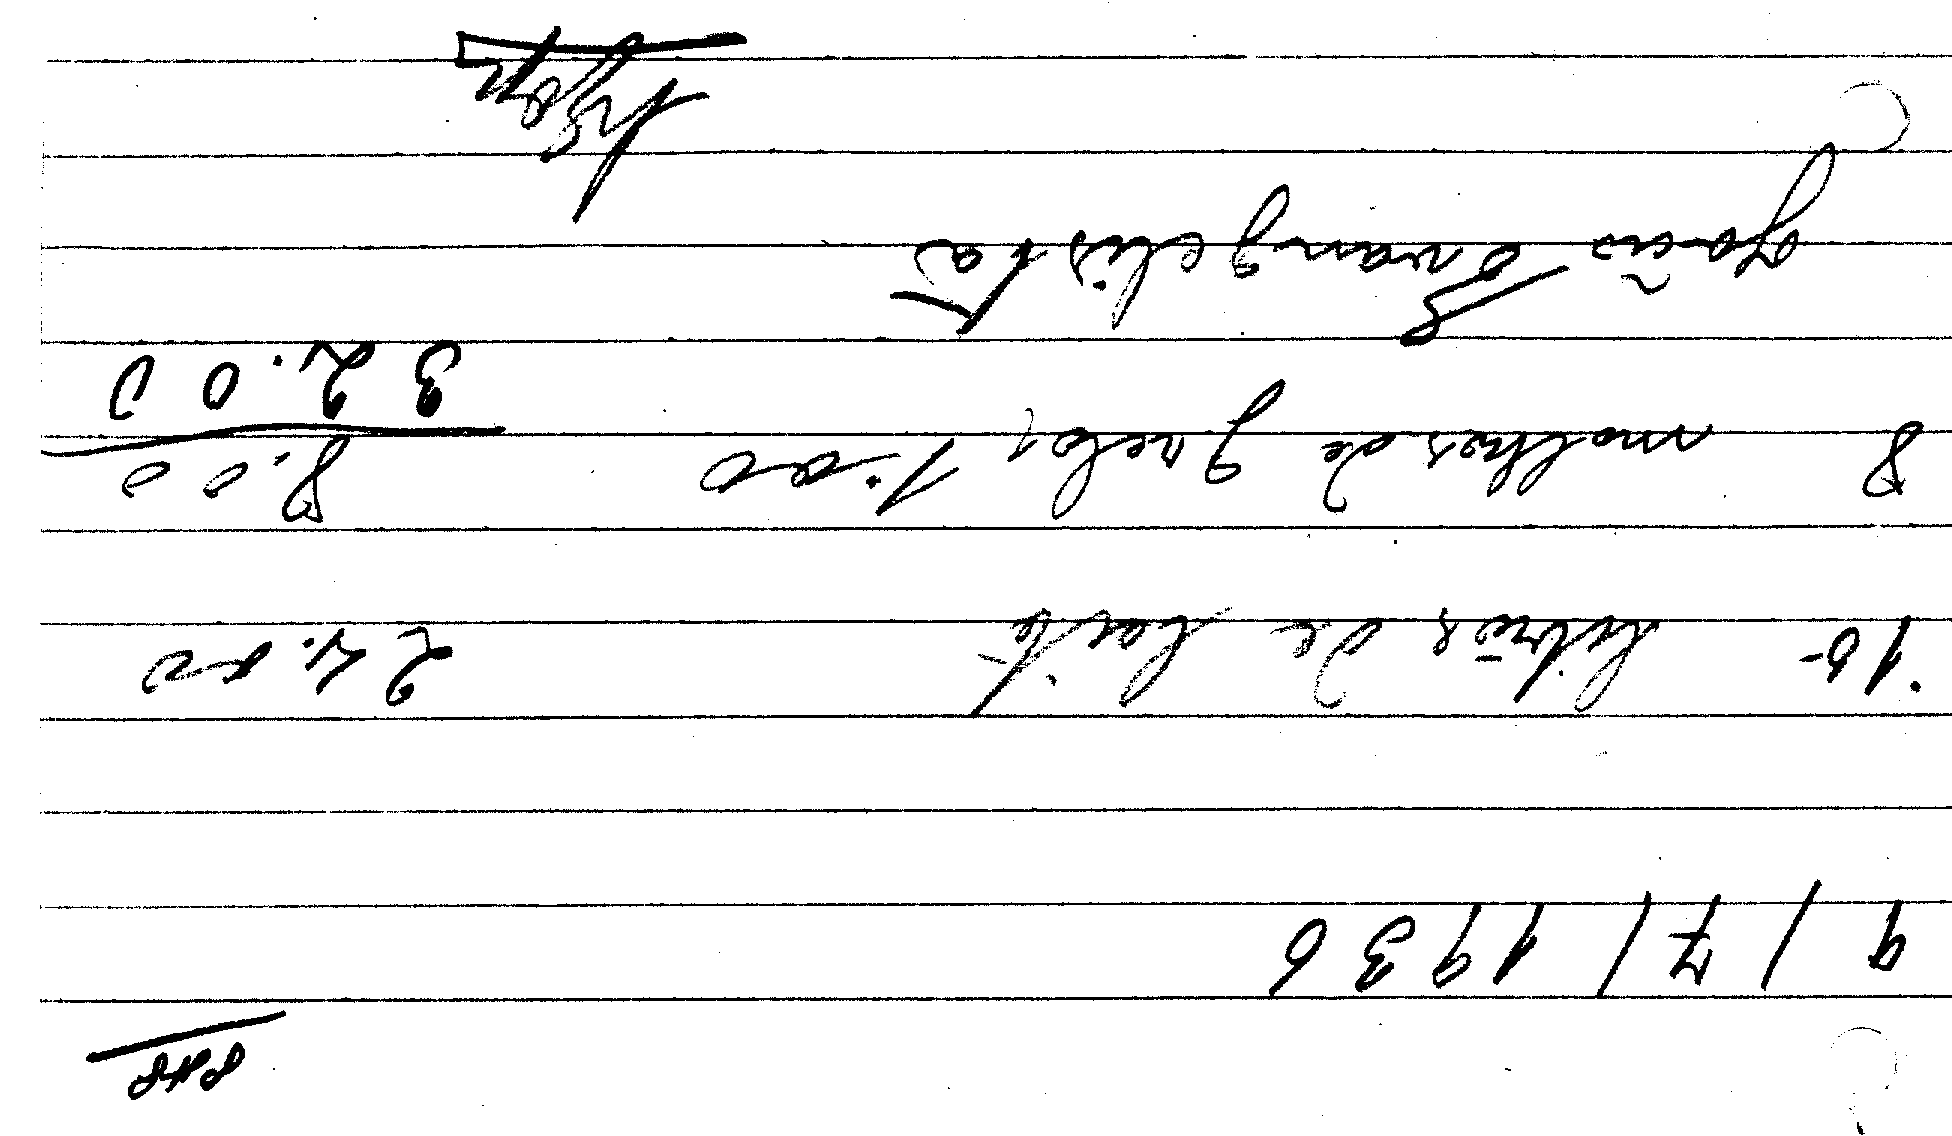 9 / 7 / 1936
16 litros de leite 24.00
8 molhos de grelos 1.00 8.00
32.00
João Evangelista